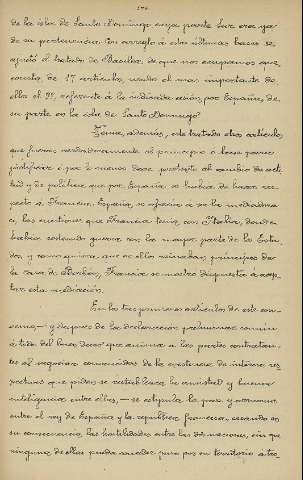 de la isla de Santo Domingo cuya parte Sur era ya
de su pertenencia. Con arreglo á estas últimas bases se
ajustó el tratado de Basilea, de que nos ocupamos que
consta de 17 artículos, siendo el mas importante de
ellos el 9º, referente á la indicada cesión por España, de
su parte en la isla de Santo Domingo.
Tenía, además, este tratado otros artículos,
que fueron verdaderamente el principio ó base para
justificar ó por lo menos dar pretexto al cambio de acti-
tud y de política, que por España, se hubiera de hacer res-
pecto á Francia. España, se ofrecía á ser la mediadora
en las cuestiones que Francia tenía con Italia, donde
había sostenido guerra con la mayor parte de los Esta-
dos, y como quiera que en ellos reinaban príncipes de
la casa de Borbón, Francia se mostró dispuesta á acep-
tar esta mediación.
En los tres primeros artículos de este con-
venio, — y después de la declaración preliminar común
á todos del buen deseo que anima á las partes contratan-
tes al negociar convencidas de la existencia de intereses res-
pectivos que piden se restablezca la amistad y buena
inteligencia entre ellas, — se estipula la paz y armonía
entre el rey de España y la república francesa, cesando en
su consecuencia las hostilidades entre las dos naciones, sin que
ninguna de ellas pueda conceder paso por su territorio á tro-